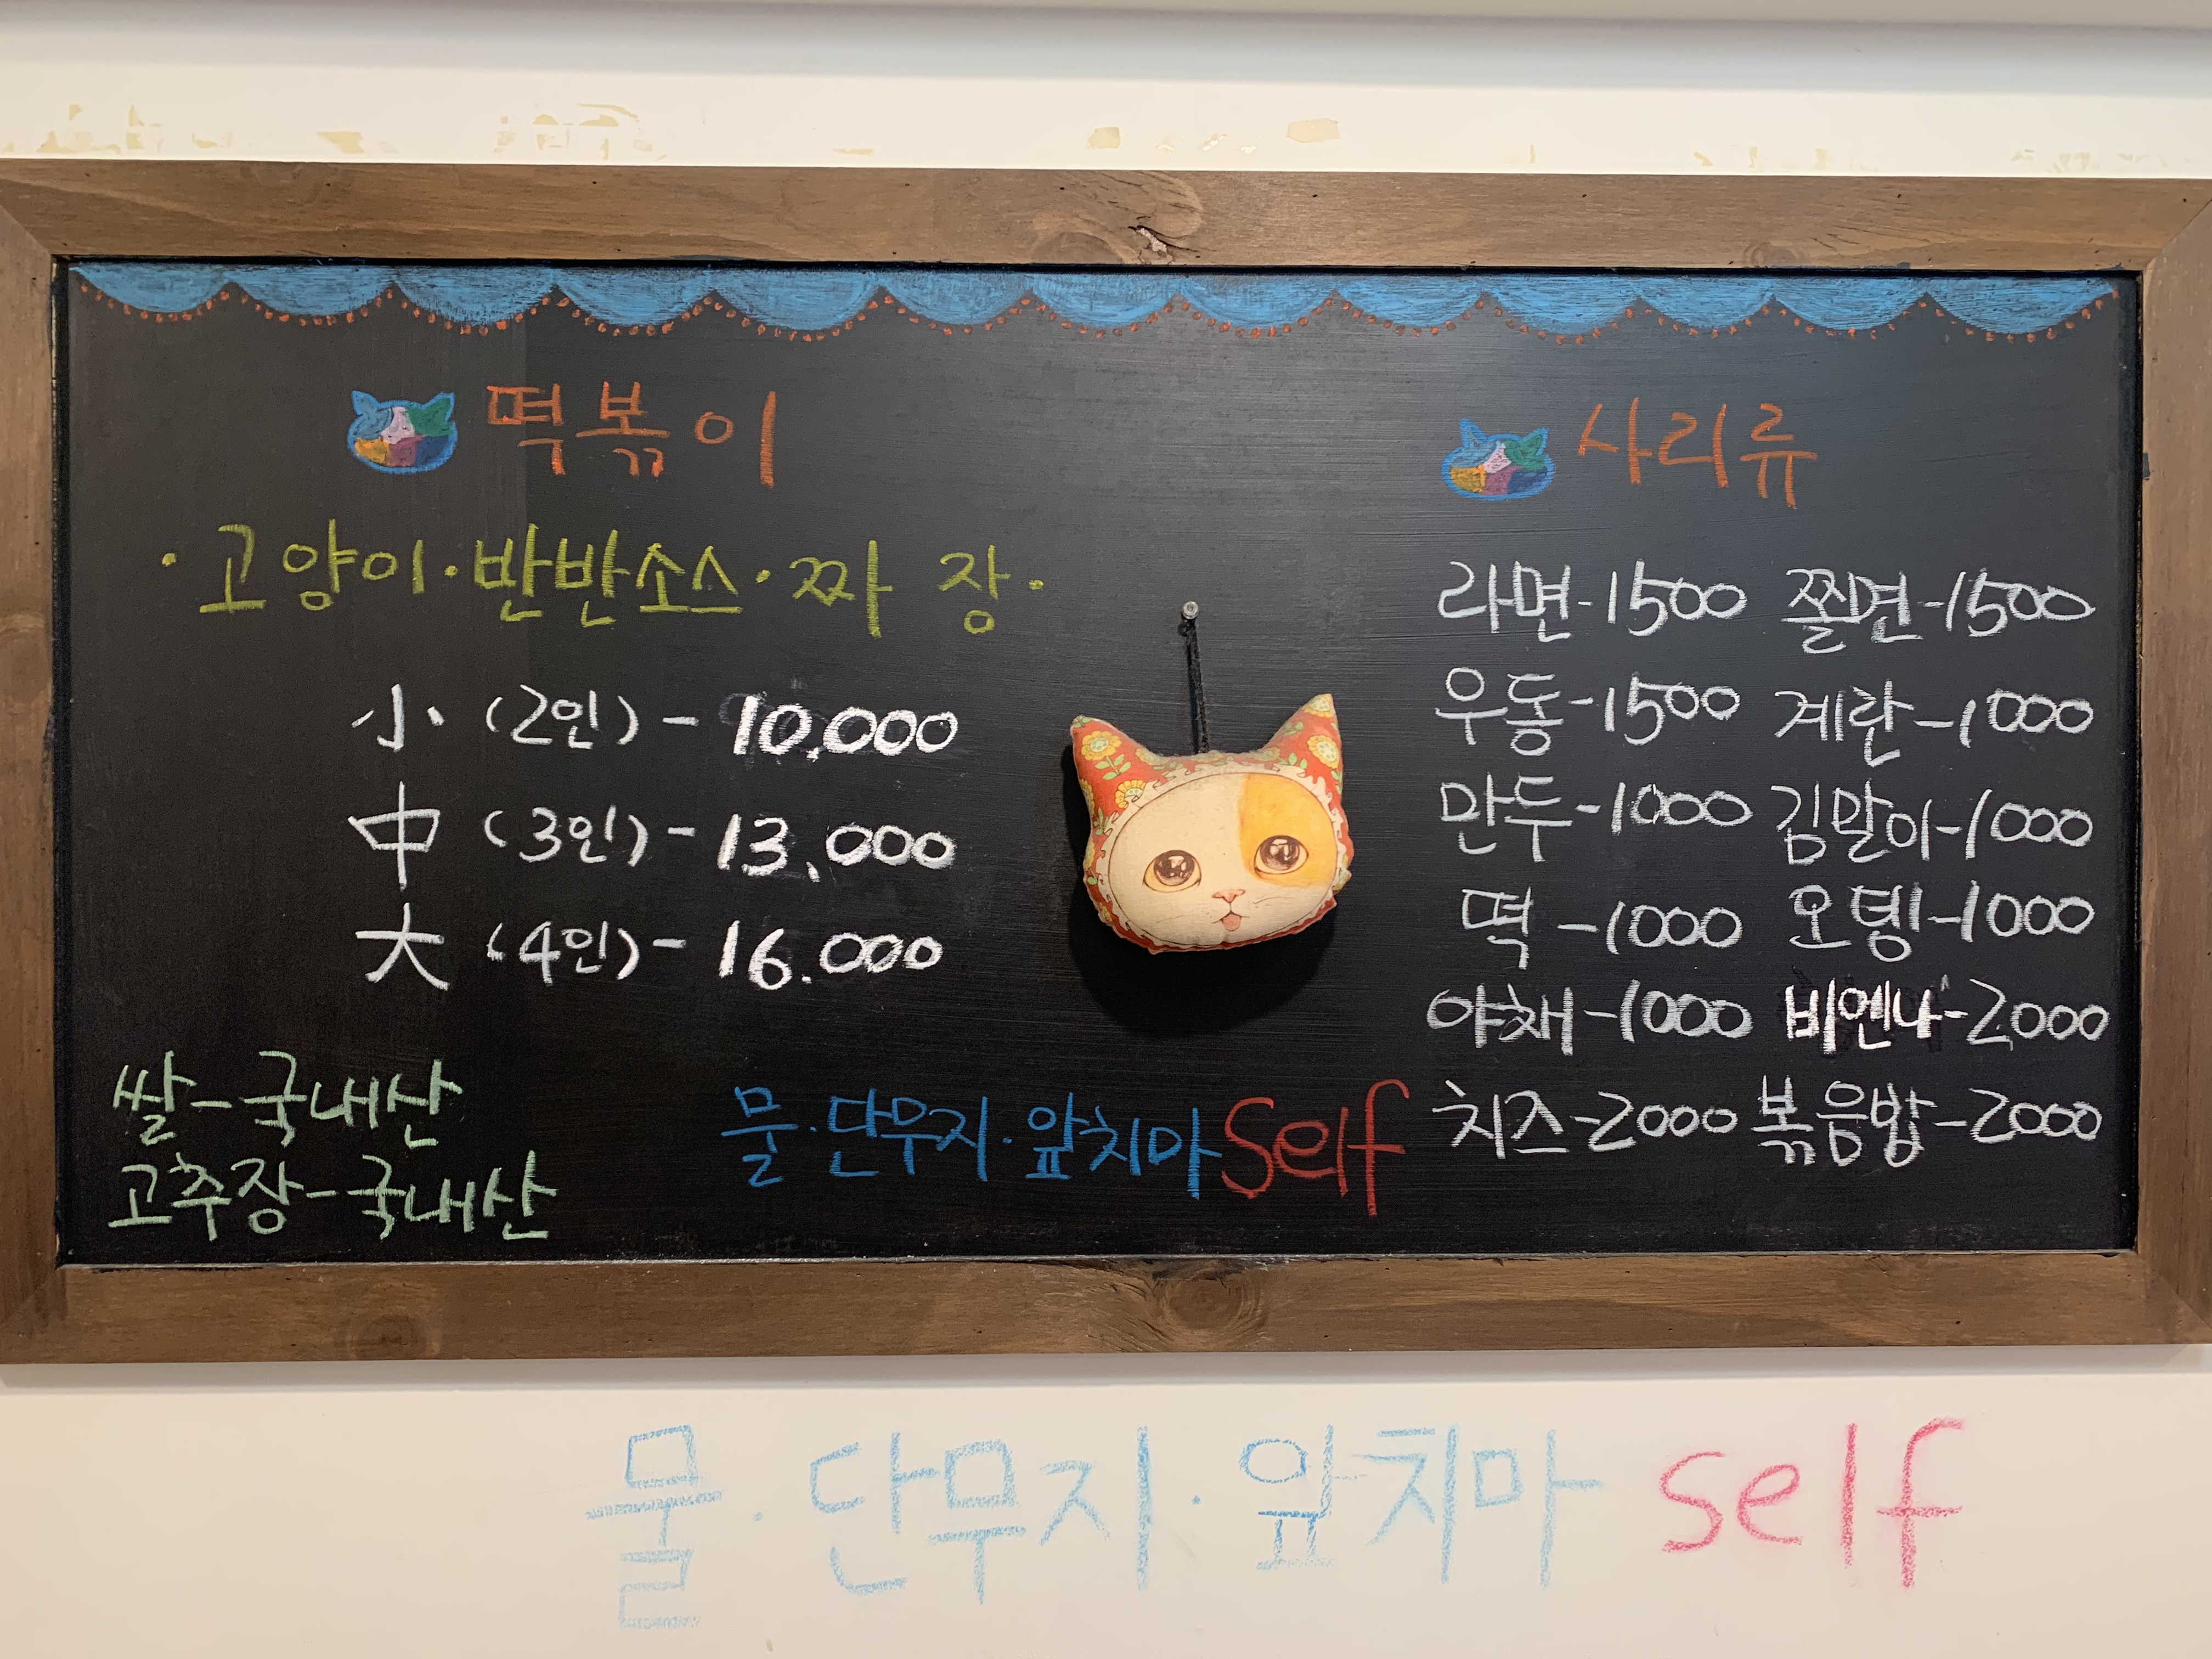 떡볶이
·고양이·반반소스·짜장·
小 (2인) - 10,000
中 (3인) - 13,000
大 (4인) - 16.000
쌀-국내산
고추장-국내산
물·단무지·앞치마 self
사리류
라면-1500 쫄면-1500
우동-1500 계란-1000
만두-1000 김말이-1000
떡-1000 오뎅-1000
야채-1000 비엔나-2000
치즈-2000 볶음밥-2000
물·단무지·앞치마 self